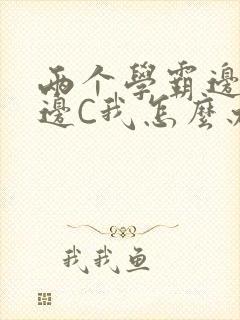 两个學霸邊
邊C我怎麼
我我鱼